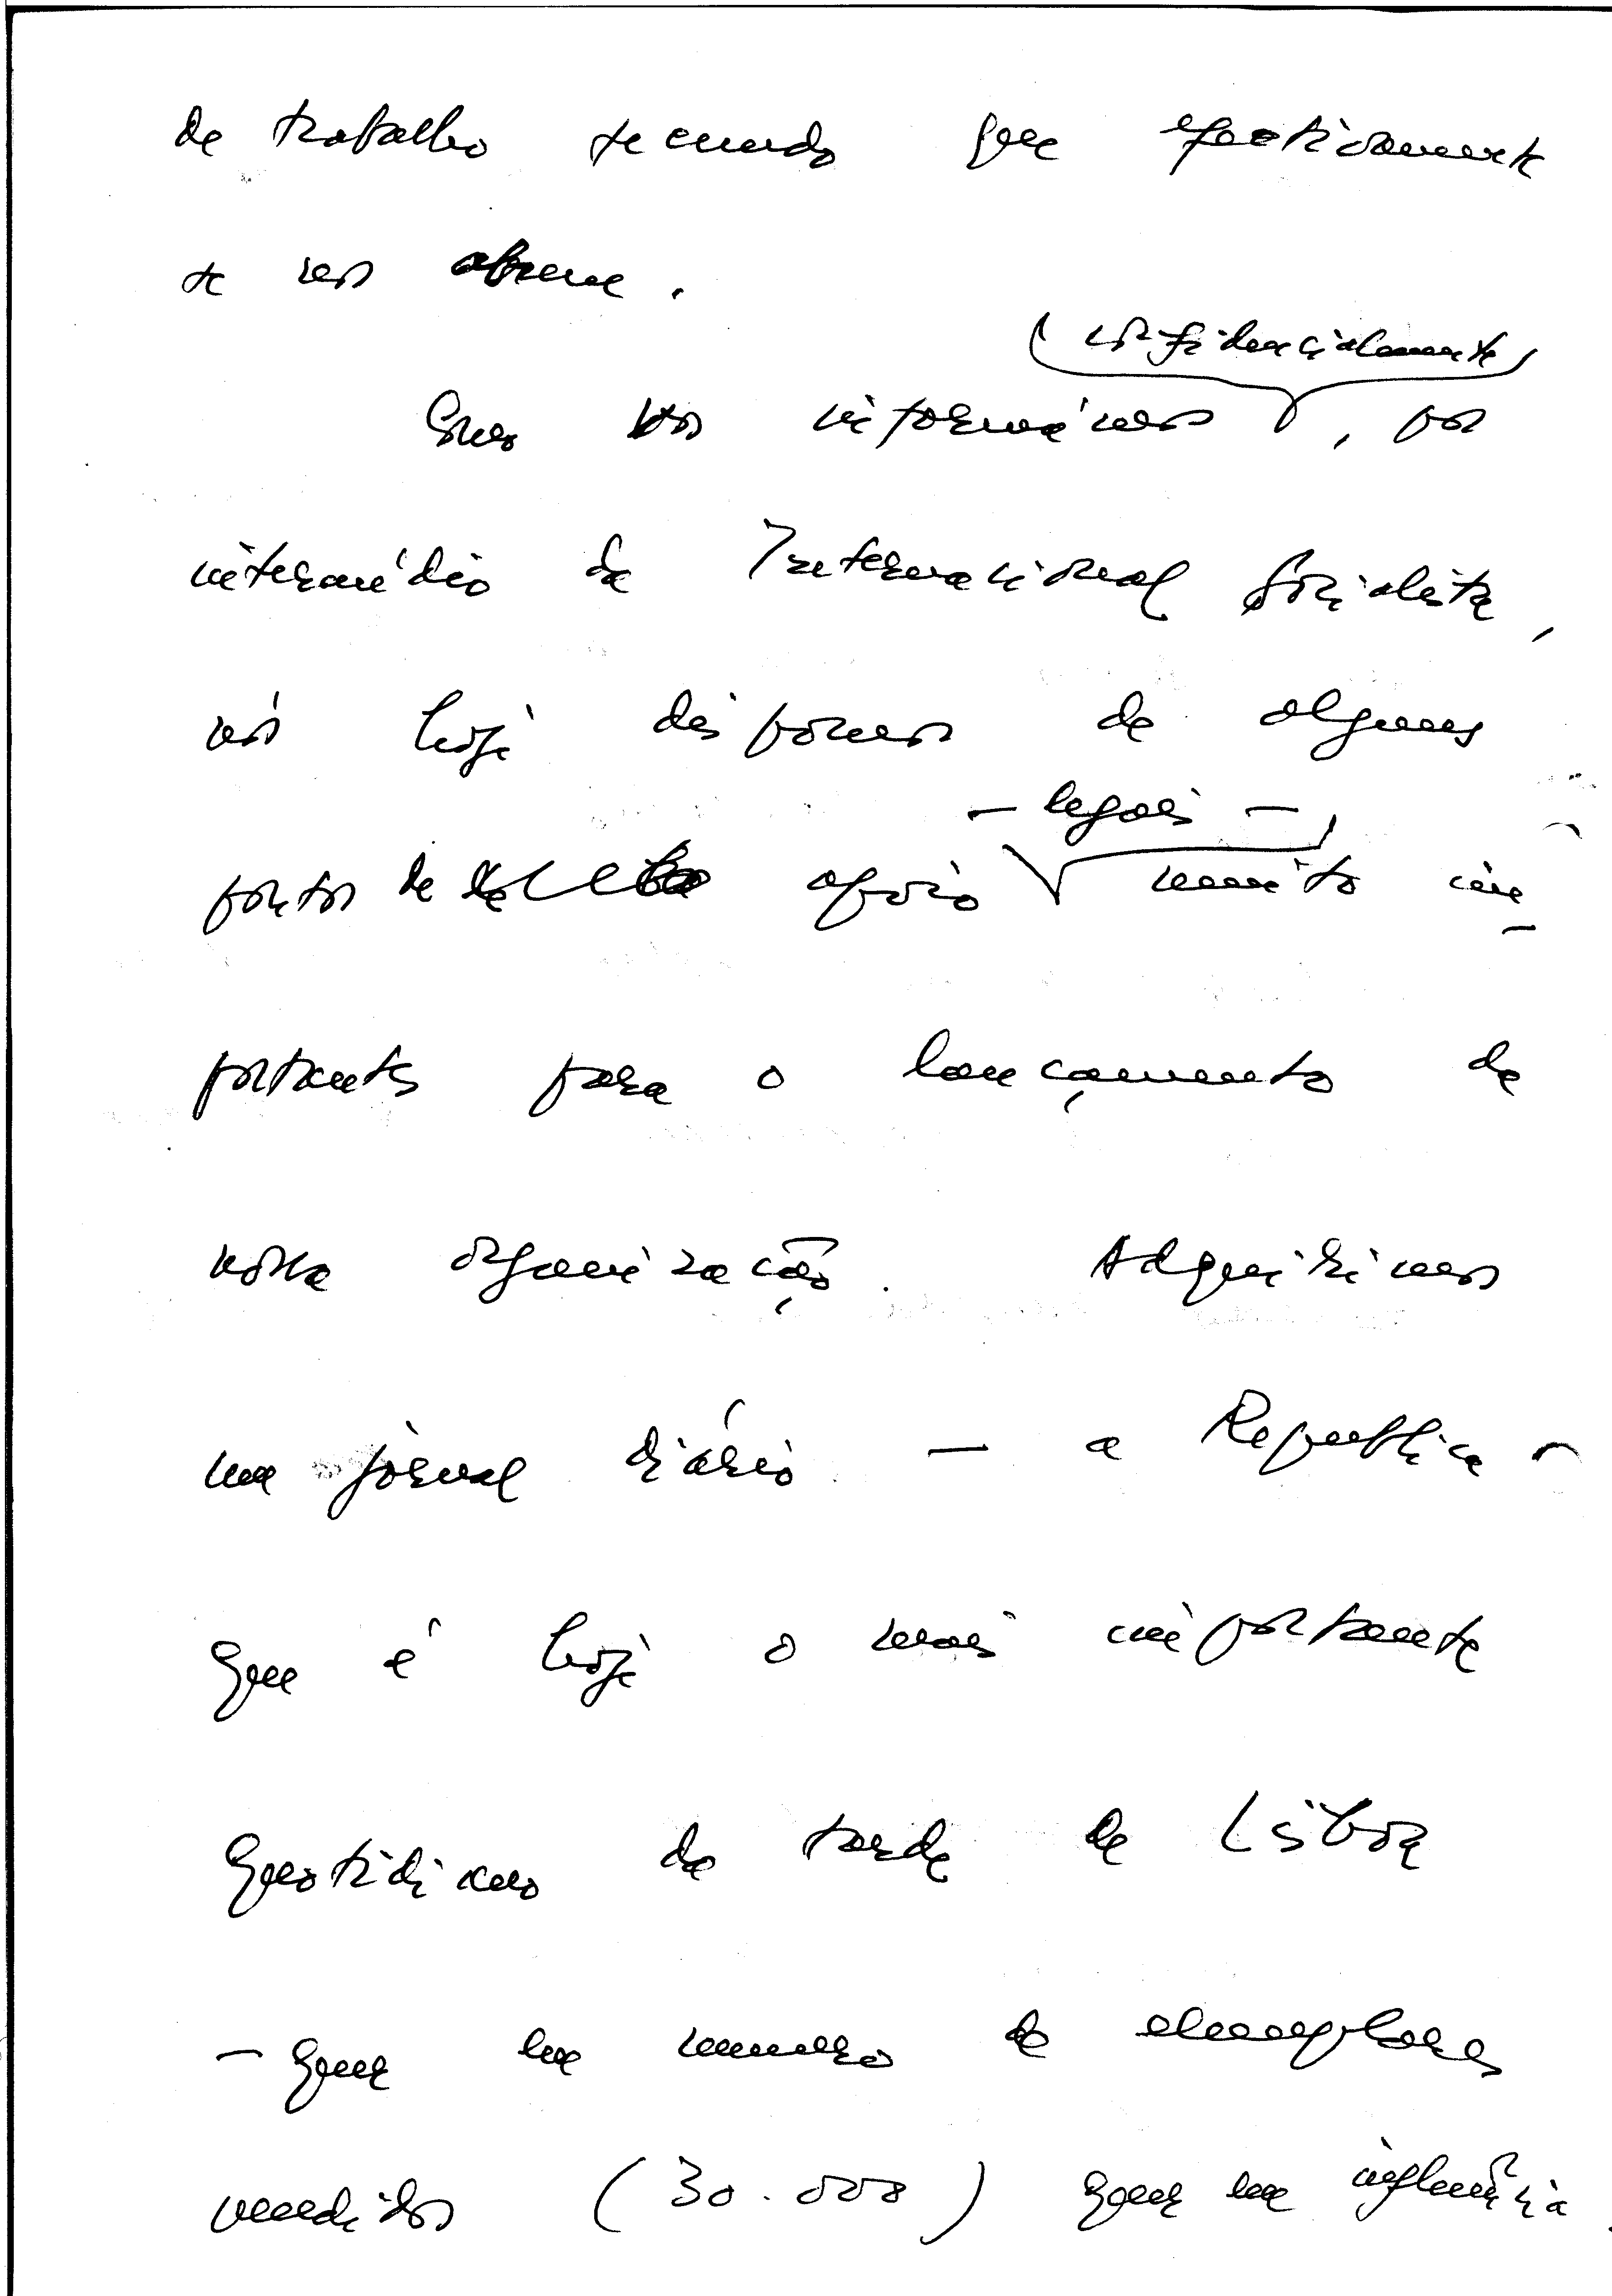 de trabalho fecundo que efectivamente
se nos abrem.
(confidencialmente)
Como vos informámos, por
intermédio da Internacional Socialista,
nós hoje dispomos de alguns
— legais —
pontos de apoio muito im-
portantes para o lançamento da
nossa organização. Adquirimos
um jornal diário — a Republica —
que é hoje o mais importante
quotidiano da tarde de Lisboa
— quer em numero de exemplares
vendidos (30.000) quer em influência.